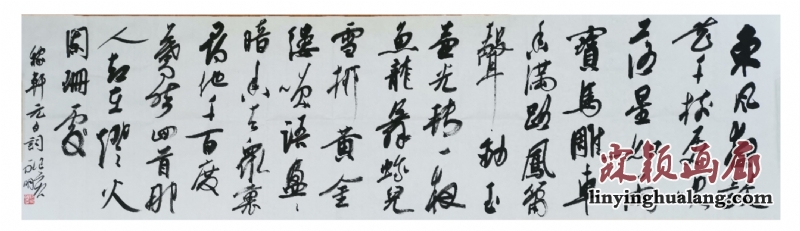 東風夜放
花千樹更吹
落星如雨
寶馬雕車
香滿路鳳簫
聲動玉
壺光轉一夜
魚龍舞蛾兒
雪柳黃金
縷笑語盈盈
暗香去眾裏
尋他千百度
驀然回首那
人卻在燈火
闌珊處
稼軒元夕詞
霖颖画廊
linyinghualang.com